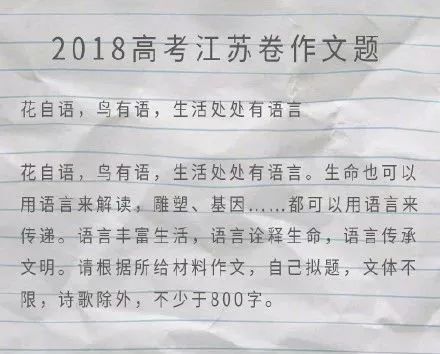 2018高考江苏卷作文题
花自语，鸟有语，生活处处有语言
花自语，鸟有语，生活处处有语言。生命也可以
用语言来解读，雕塑、基因……都可以用语言来
传递。语言丰富生活，语言诠释生命，语言传承
文明。请根据所给材料作文，自己拟题，文体不
限，诗歌除外，不少于800字。